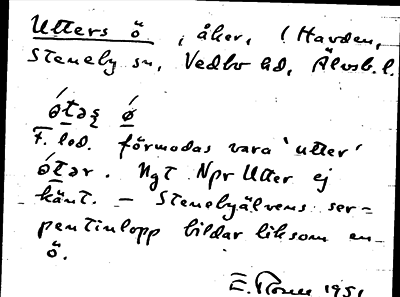 Utters ö , åker, (Havden,
Steneby sn, Vedbo hd, Älvsb. l.
ó̱təʂ ǿ̱
F. led. förmodas vara 'utter'
ó̱tər. Ngt Npr Utter ej
känt. – Stenebyälvens ser=
pentinlopp bildar liksom en
ö.
E. 1951